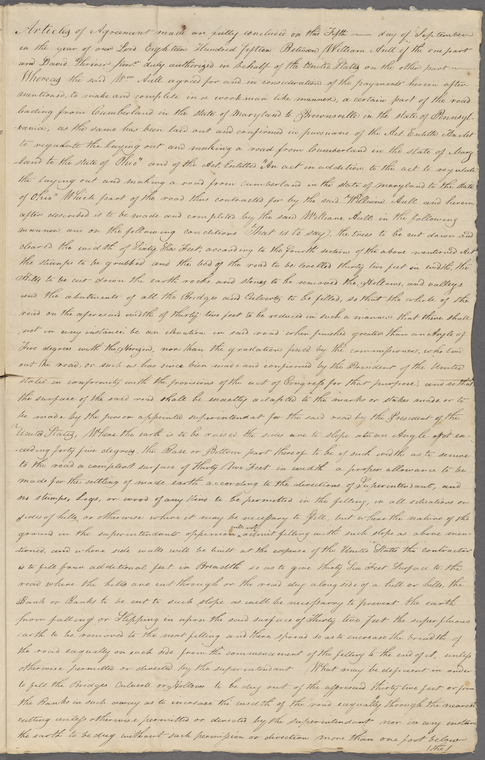 Articles of Agreement made and fully concluded on this Fifth day of September
in the year of our Lord Eighteen Hundred fifteen Between William Aull of the one part
and David Shriver Junr duly authorized in behalf of the United States on the other part
Whereas the said Wm Aull agreed for and in consideration of the payments herein after
mentioned, to make and complete in a workman like manner, a certain part of the road
leading from Cumberland in the state of Maryland to Brownsville in the state of Pennsyl
vania, as the same has been laid out and confirmed in pursuance of the Act Entitled An Act
to regulate the laying out and making a road from Cumberland in the state of Mary
land to the state of Ohio" and of the Act Entitled "An act in addition to the act to regulate
the laying out and making a road from Cumberland in the state of maryland to the State
of Ohio" Which part of the road thus contracted for by the said William Aull and herein
after described is to be made and completed by the said William Aull in the following
manner and on the following conditions (That is to say) the trees to be cut down and
cleared the width of Sixty Six Feet according to the fourth section of the above mentioned Act
the stumps to be grubbed and the bed of the road to be levelled thirty two feet in width, the
Hills to be cut down the earth rocks and stones to be removed the Hollows, and valleys
and the abutments of all the Bridges and Culverts to be filled, so that the whole of the
road on the aforesaid width of thirty two feet to be reduced in such a manner that there shall
not in any instance be an elevation in said road when finished greater than an Angle of
Five degrees with the Horizon, nor than the graduation fixed by the commissioners, who laid
out the road, or such as has since been made and confirmed by the President of the United
States in conformity with the provisions of the act of Congress for that purpose, and so that
the surface of the said road shall be exactly adapted to the marks or stakes made or to
be made by the person appointed superintendant for the said road by the President of the
United States, Where the earth is to be raised the sides are to slope at an Angle not ex-
ceeding forty five degrees, the Base or Bottom part thereof to be of such width as to secure
to the road a compleat surface of thirty two Feet in width a proper allowance to be
made for the settling of made earth according to the directions of Superintendant, and
no stumps, Logs, or wood of any kind to be permitted in the filling, in all situations on
sides of hills, or otherwise where it may be necessary to fill, but where the nature of the
ground in the superintendants oppinion will not admit filling with such slope as above men
tioned, and where side walls will be built at the expense of the United States the contractor
is to fill four additional feet in Breadth so as to give thirty Six Feet Surface to the
road where the hills are cut through or the road dug along side of a hill or hills, the
Bank or Banks to be cut to such slope as will be necessary to prevent the earth
from falling or Slipping in upon the said surface of thirty two feet the superfluous
earth to be removed to the next filling and there spread so as to increase the breadth of
the road equally on each side from the commencement of the filling to the end of it, unless
otherwise permitted or directed by the superintendant What may be deficient in order
to fill the Bridges Culverts or Hollows to be dug out of the aforesaid thirty two feet or from
the Banks in such way as to increase the width of the road equally through the nearest
cutting unless otherwise permitted or directed by the superintendant nor in any instance
the earth to be dug without such permission or direction more than one foot below
(the)